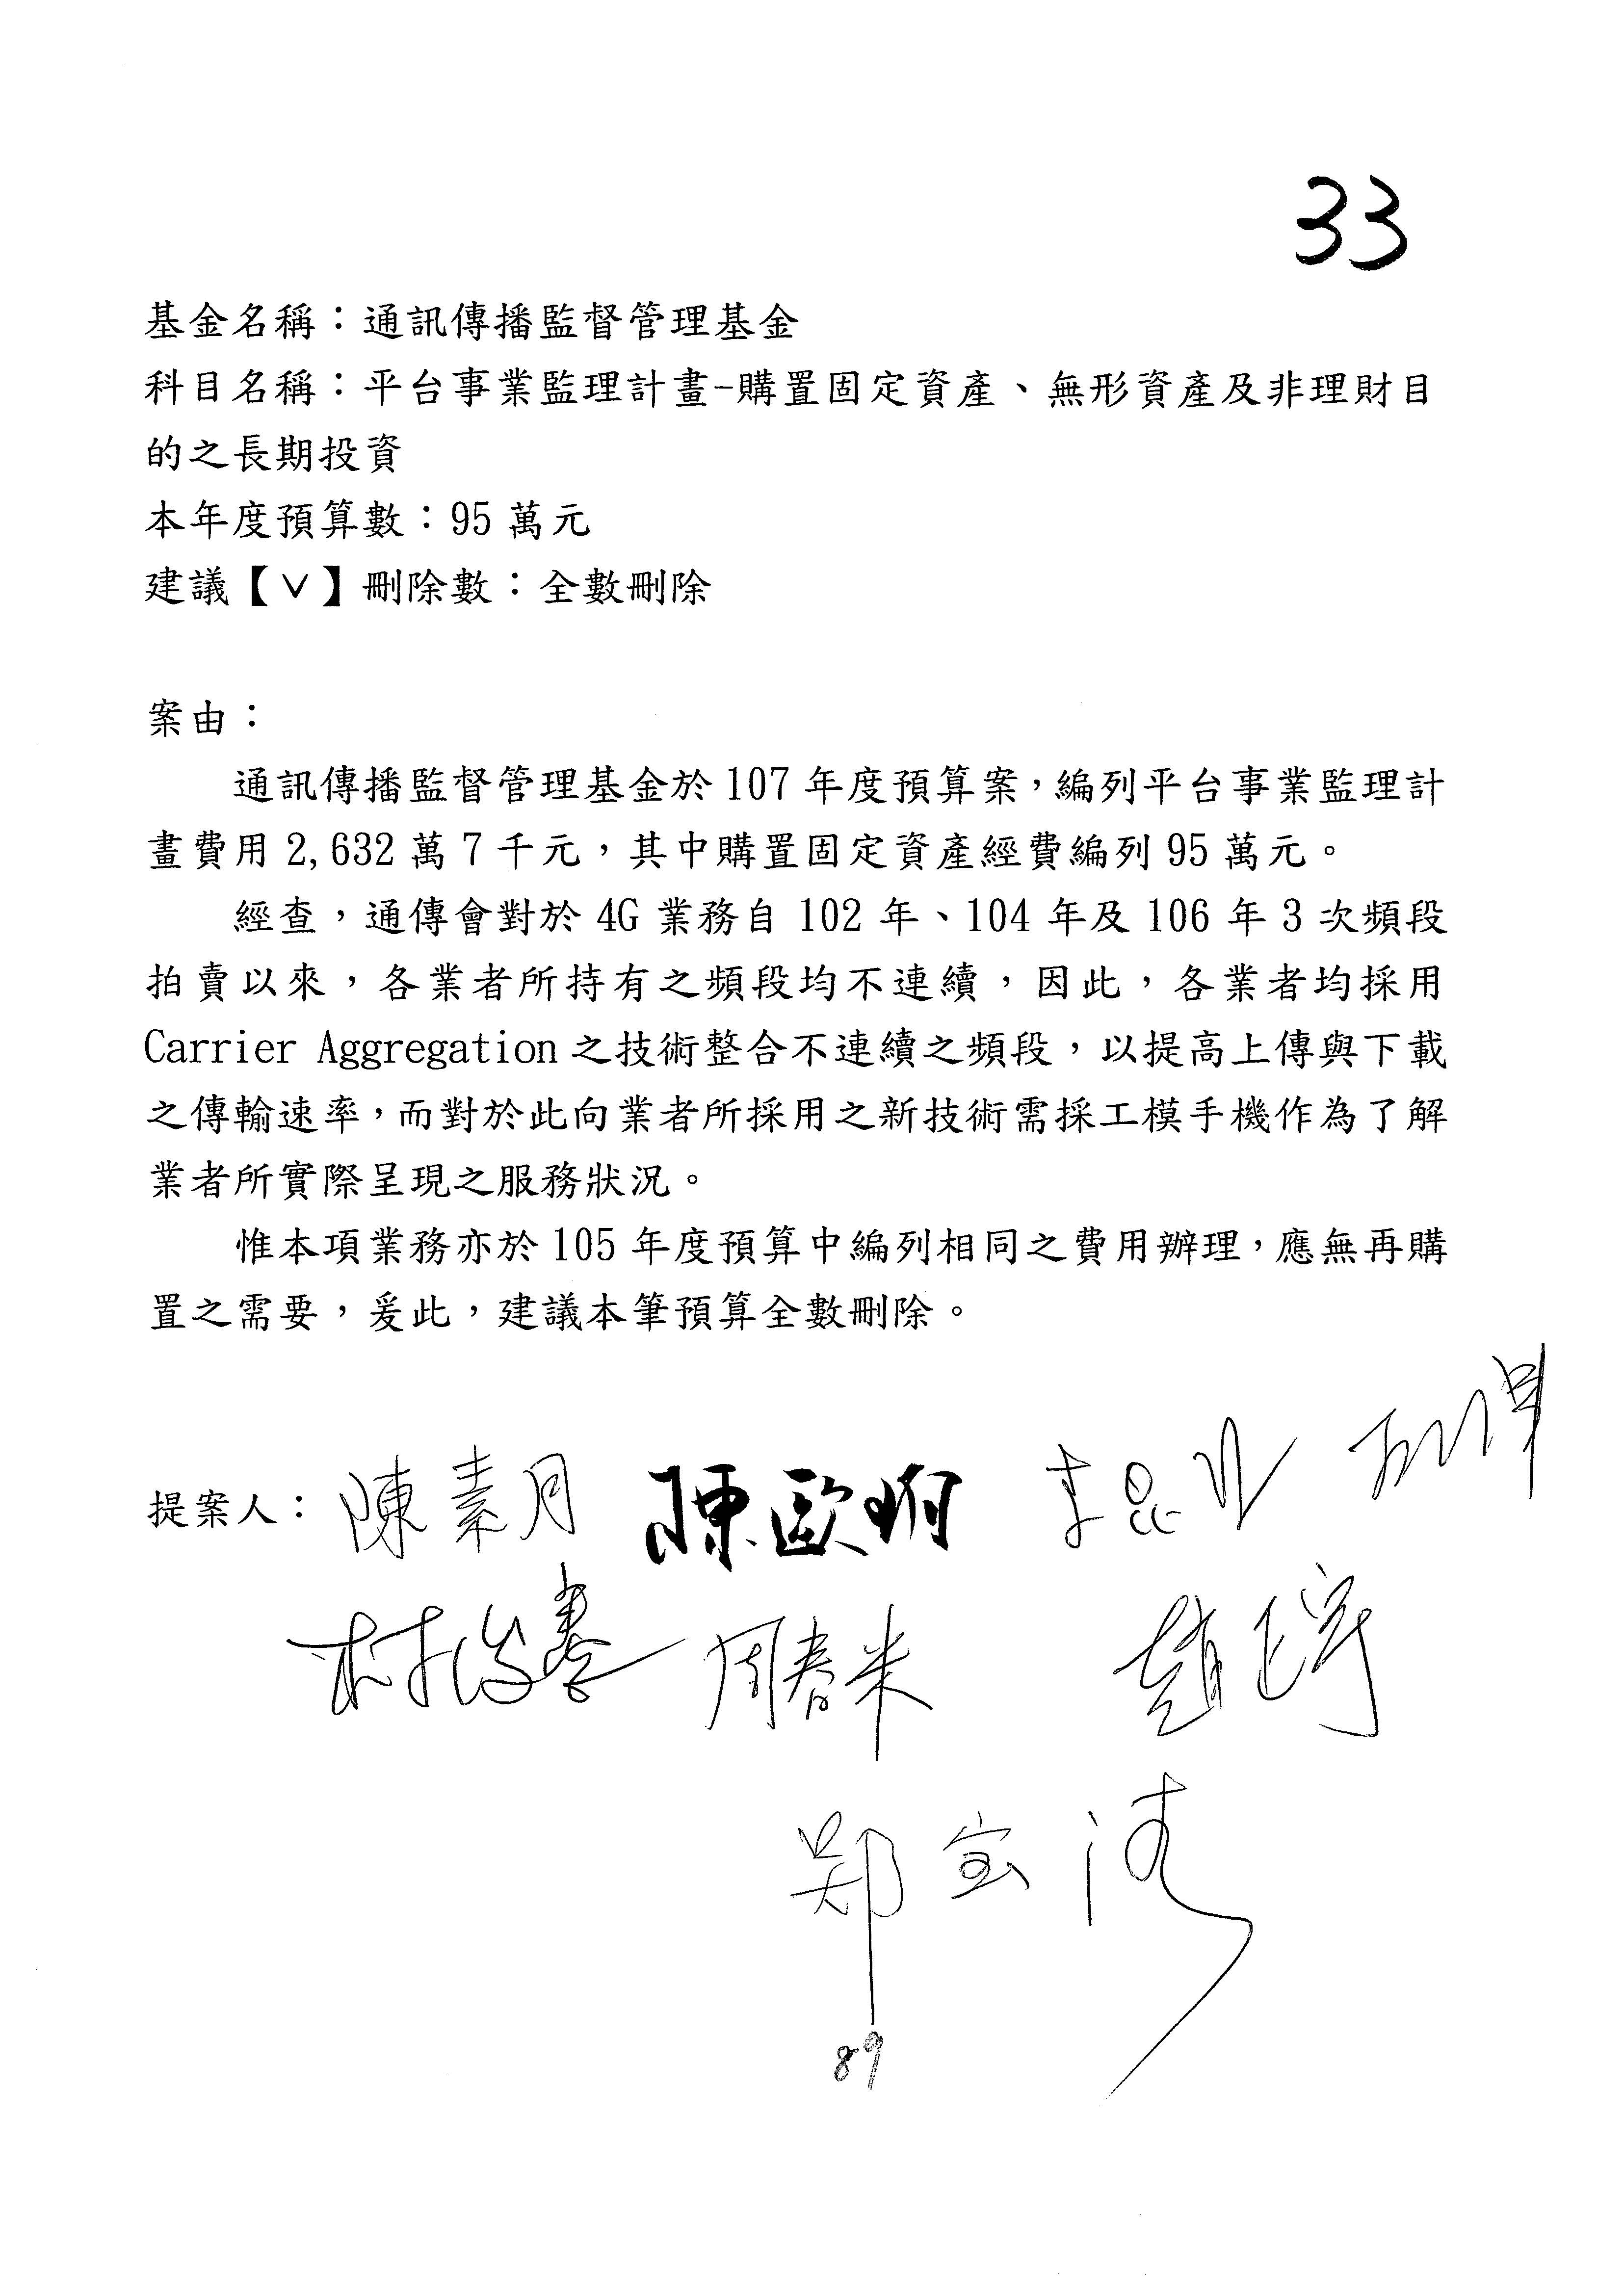 33
基金名稱：通訊傳播監督管理基金
科目名稱：平台事業監理計畫-購置固定資產、無形資產及非理財目
的之長期投資
本年度預算數：95 萬元
建議【∨】刪除數：全數刪除
案由：
通訊傳播監督管理基金於 107 年度預算案，編列平台事業監理計
畫費用 2,632 萬 7 千元，其中購置固定資產經費編列 95 萬元。
經查，通傳會對於 4G 業務自 102 年、104 年及 106 年 3 次頻段
拍賣以來，各業者所持有之頻段均不連續，因此，各業者均採用
Carrier Aggregation 之技術整合不連續之頻段，以提高上傳與下載
之傳輸速率，而對於此向業者所採用之新技術需採工模手機作為了解
業者所實際呈現之服務狀況。
惟本項業務亦於 105 年度預算中編列相同之費用辦理，應無再購
置之需要，爰此，建議本筆預算全數刪除。
提案人：陳素月 陳歐珀 李昆澤
林俊憲 周春米 趙正宇
鄭宝清
89